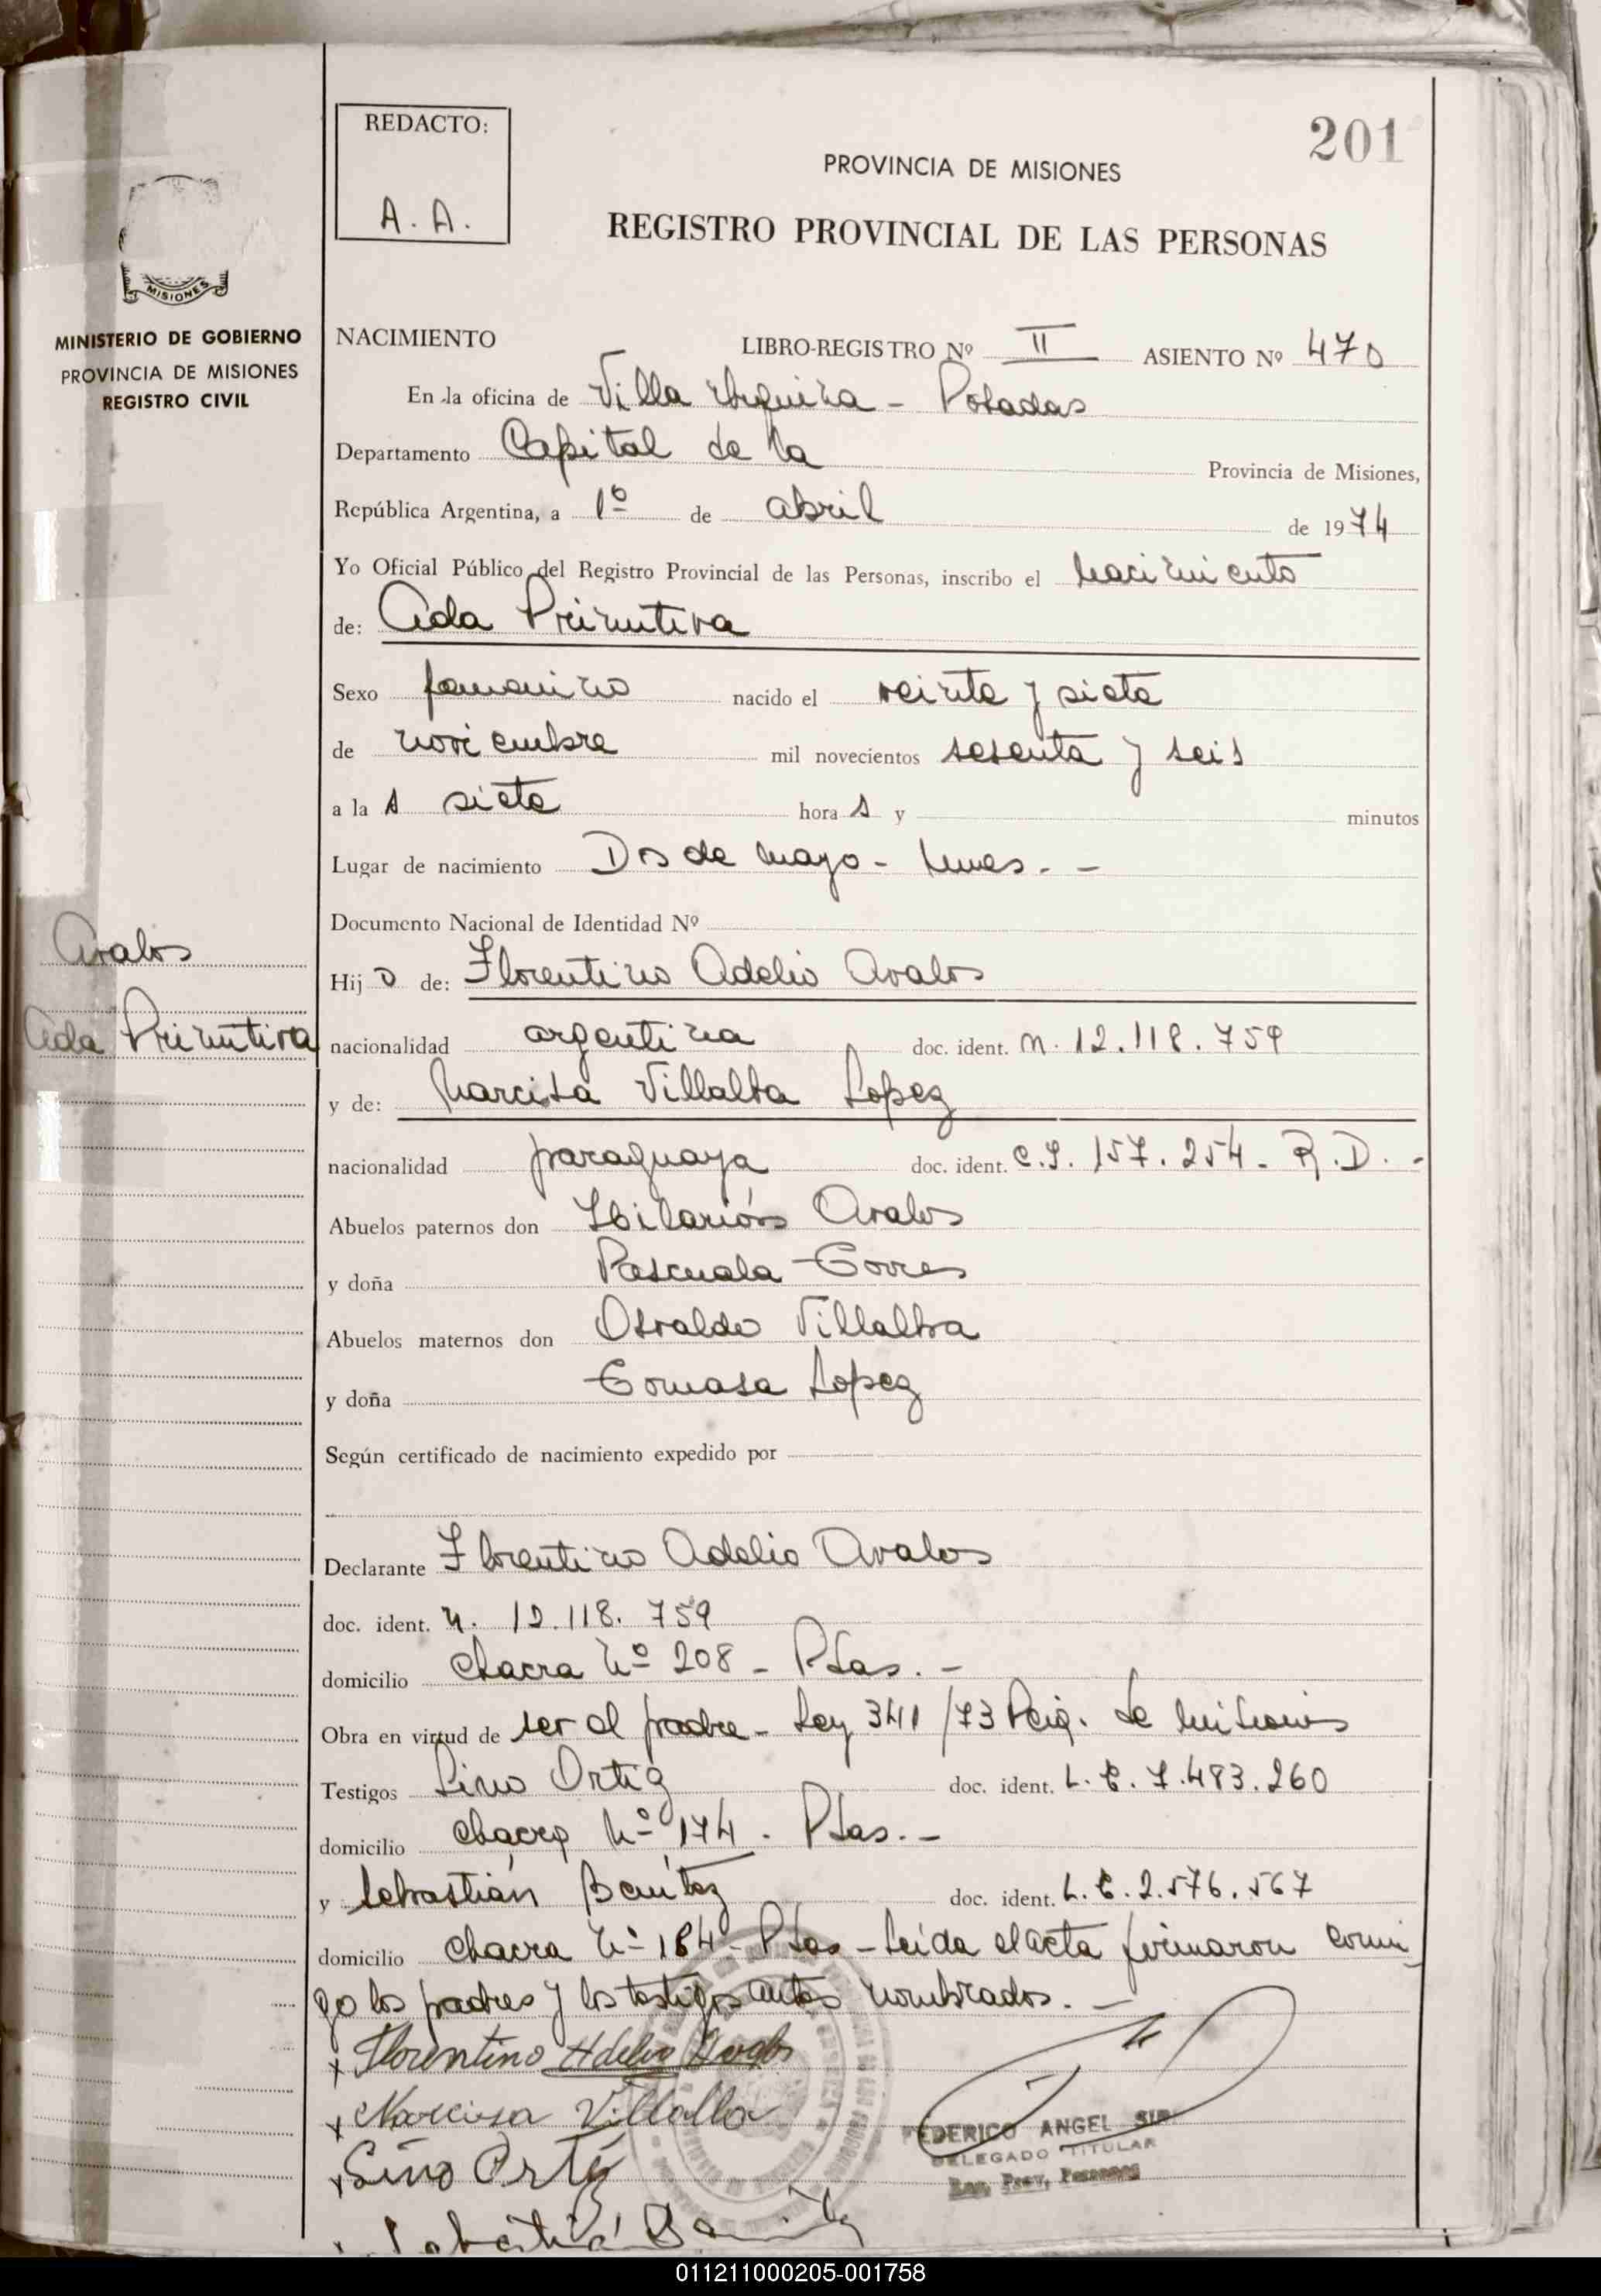 REDACTO:
A. A.
201
PROVINCIA DE MISIONES
REGISTRO PROVINCIAL DE LAS PERSONAS
MISIONES
MINISTERIO DE GOBIERNO
PROVINCIA DE MISIONES
REGISTRO CIVIL
NACIMIENTO LIBRO-REGISTRO Nº II ASIENTO Nº 470
En la oficina de Villa Urquiza - Posadas
Departamento Capital de la Provincia de Misiones,
República Argentina, a 1º de abril de 1974
Yo Oficial Público del Registro Provincial de las Personas, inscribo el nacimiento
de: Ada Primitiva
Sexo femenino nacido el veinte y siete
de noviembre mil novecientos sesenta y seis
a las siete horas y minutos
Lugar de nacimiento Dos de mayo - Mnes. -
Documento Nacional de Identidad Nº
Avalos
Ada Primitiva
Hijo de: Florentino Adelio Avalos
nacionalidad argentina doc. ident. M. 12.118.759
y de: Narcisa Villalba Lopez
nacionalidad paraguaya doc. ident. C.I. 157.254. R.D. -
Abuelos paternos don Hilarión Avalos
y doña Pascuala Torres
Abuelos maternos don Osvaldo Villalba
y doña Tomasa Lopez
Según certificado de nacimiento expedido por
Declarante Florentino Adelio Avalos
doc. ident. M. 12.118.759
domicilio chacra Nº 208 - Pdas. -
Obra en virtud de ser el padre - Ley 341/73 Pcia. de Misiones
Testigos Lino Ortiz doc. ident. L.E. 7.483.260
domicilio chacra Nº 174. Pdas. -
y Sebastián Benítez doc. ident. L.E. 2.576.567
domicilio chacra Nº 184 - Pdas - Leída el acta firmaron conmi
go los padres y los testigos antes nombrados. -
x Florentino Adelio Avalos
x Narcisa Villalba
x Lino Ortiz
Sebastián Benítez
FEDERICO ANGEL
DELEGADO TITULAR
Reg. Prov. Personas
011211000205-001758